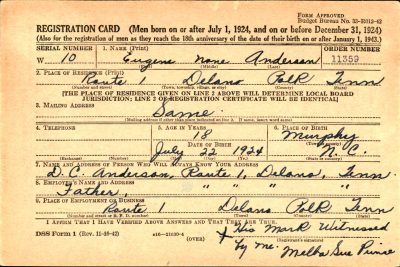 FORM APPROVED
Budget Bureau No. 33-R012-42
REGISTRATION CARD (Men born on or after July 1, 1924, and on or before December 31, 1924)
(Also for the registration of men as they reach the 18th anniversary of the date of their birth on or after January 1, 1943.)
SERIAL NUMBER 1. NAME (Print) ORDER NUMBER
W 10 Eugene None Anderson 11359
2. PLACE OF RESIDENCE (Print)
Route 1 Delano Polk Tenn
(Number and street) (Town, township, village, or city) (County) (State)
[THE PLACE OF RESIDENCE GIVEN ON LINE 2 ABOVE WILL DETERMINE LOCAL BOARD
JURISDICTION; LINE 2 OF REGISTRATION CERTIFICATE WILL BE IDENTICAL]
3. MAILING ADDRESS
Same
[Mailing address if other than place indicated on line 2. If same, insert word same]
4. TELEPHONE 5. AGE IN YEARS 6. PLACE OF BIRTH
18 Murphy
DATE OF BIRTH
July 22 1924 N.C.
(Exchange) (Number) (Mo.) (Day) (Yr.) (State or country)
7. NAME AND ADDRESS OF PERSON WHO WILL ALWAYS KNOW YOUR ADDRESS
D. C. Anderson, Route 1, Delano, Tenn.
8. EMPLOYER'S NAME AND ADDRESS
Father, " " " "
9. PLACE OF EMPLOYMENT OR BUSINESS
Route 1 Delano Polk Tenn
(Number and street or R. F. D. number) (Town) (County) (State)
I AFFIRM THAT I HAVE VERIFIED ABOVE ANSWERS AND THAT THEY ARE TRUE.
DSS Form 1 (Rev. 11-16-42) (OVER) X His Mark Witnessed
by me: Melba Sue Prince